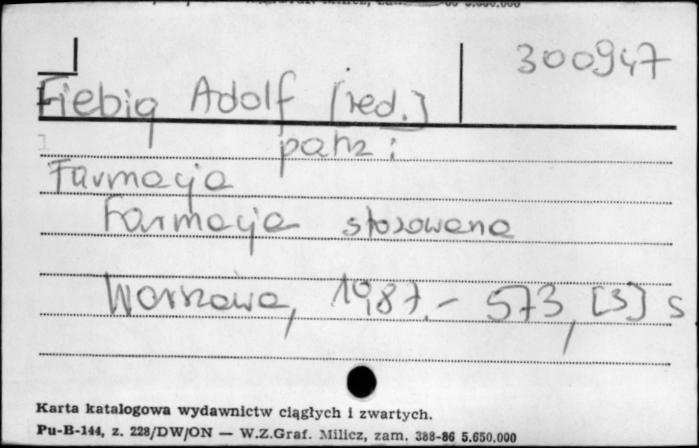 300947
Fiebig Adolf [red.]
patrz:
Farmacja
Farmacja stosowana
Warszawa, 1987.- 573, [3] s
Karta katalogowa wydawnictw ciągłych i zwartych.
Pu-B-144, z. 228/DW/ON — W.Z.Graf. Milicz, zam. 388-86 5.650.000